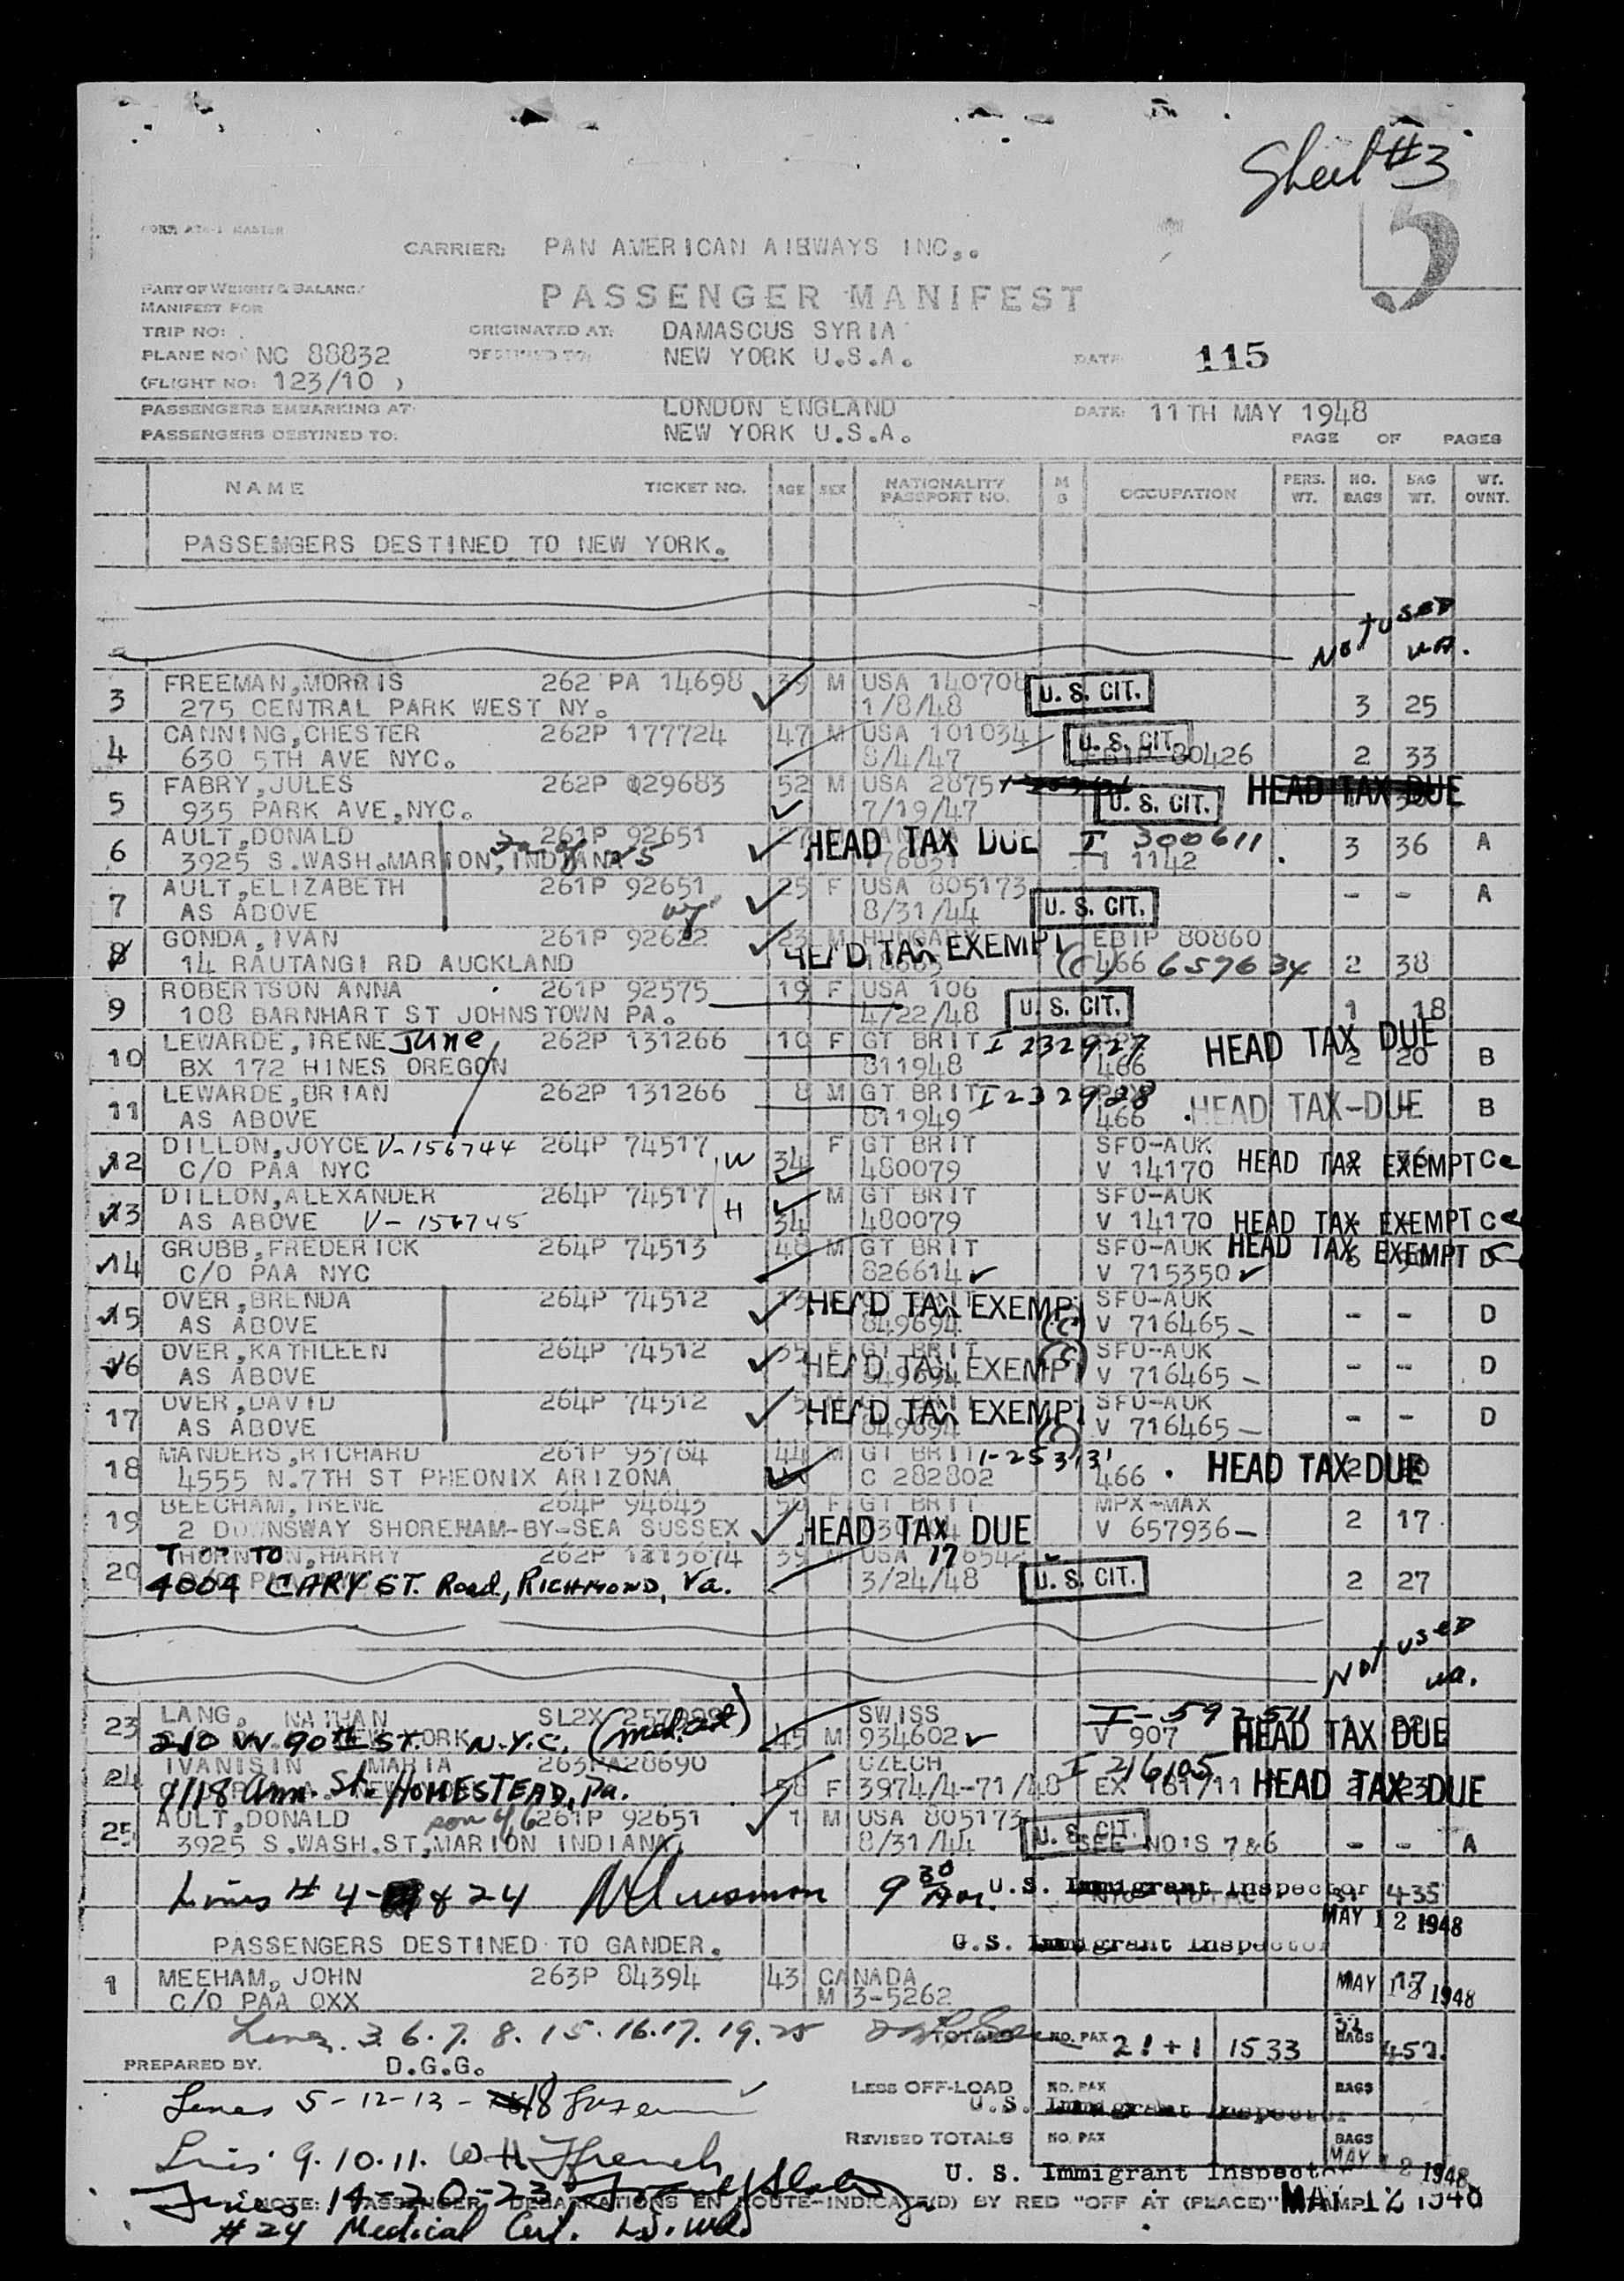 Sheet #3
5
FORM ATC-1 MASTER
CARRIER: PAN AMERICAN AIRWAYS INC..
PART OF WEIGHT & BALANCE
MANIFEST FOR
PASSENGER MANIFEST
TRIP NO:
ORIGINATED AT: DAMASCUS SYRIA
PLANE NO: NC 88832 DESTINED TO: NEW YORK U.S.A. DATE 115
(FLIGHT NO: 123/10 )
PASSENGERS EMBARKING AT: LONDON ENGLAND DATE: 11TH MAY 1948
PASSENGERS DESTINED TO: NEW YORK U.S.A.
PAGE OF PAGES
NAME TICKET NO. AGE SEX NATIONALITY PASSPORT NO. M G OCCUPATION PERS. WT. NO. BAGS BAG WT. WT. OVNT.
PASSENGERS DESTINED TO NEW YORK.
Not used
3 FREEMAN,MORRIS 262 PA 14698 39 M USA 140708 U. S. CIT.
275 CENTRAL PARK WEST NY. 1/8/48 3 25
4 CANNING,CHESTER 262P 177724 47 M USA 101034 U. S. CIT.
630 5TH AVE NYC. 8/4/47 80426 2 33
5 FABRY,JULES 262P 029683 52 M USA 2875 HEAD TAX DUE
935 PARK AVE,NYC. 7/19/47 U. S. CIT.
6 AULT,DONALD 261P 92651 27 HEAD TAX DUE I 300611
3925 S.WASH.MARION,INDIANA 1142 3 36 A
7 AULT,ELIZABETH 261P 92651 25 F USA 805173
AS ABOVE 8/31/44 U. S. CIT. - - A
8 GONDA,IVAN 261P 92622 23 M HUNGARY HEAD TAX EXEMPT EBIP 80860
14 RAUTANGI RD AUCKLAND (C) 466 657634 2 38
9 ROBERTSON ANNA 261P 92575 19 F USA 106 U. S. CIT.
108 BARNHART ST JOHNSTOWN PA. 4/22/48 1 18
10 LEWARDE,IRENE June 262P 131266 10 F GT BRIT I 232927 HEAD TAX DUE
BX 172 HINES OREGON 811948 466 2 20 B
11 LEWARDE,BRIAN 262P 131266 8 M GT BRIT I 232928 HEAD TAX DUE
AS ABOVE 811949 466 B
12 DILLON,JOYCE V-156744 264P 74517 W 34 F GT BRIT SFO-AUK
C/O PAA NYC 480079 V 14170 HEAD TAX EXEMPT C
13 DILLON,ALEXANDER 264P 74517 H 34 M GT BRIT SFO-AUK
AS ABOVE V-156745 480079 V 14170 HEAD TAX EXEMPT C
14 GRUBB,FREDERICK 264P 74513 48 M GT BRIT SFO-AUK HEAD TAX EXEMPT D
C/O PAA NYC 826614 V 715350
15 OVER,BRENDA 264P 74512 HEAD TAX EXEMPT SFO-AUK
AS ABOVE 849694 (C) V 716465 - - D
16 OVER,KATHLEEN 264P 74512 35 F GT BRIT HEAD TAX EXEMPT SFO-AUK
AS ABOVE 849694 (C) V 716465 - - D
17 OVER,DAVID 264P 74512 HEAD TAX EXEMPT SFO-AUK
AS ABOVE 849694 V 716465 - - D
18 MANDERS,RICHARD 261P 93784 44 M GT BRIT I-253131
4555 N.7TH ST PHEONIX ARIZONA C 282802 466 HEAD TAX DUE
19 BEECHAM,IRENE 264P 94643 50 F GT BRIT MPX-MAX
2 DOWNSWAY SHOREHAM-BY-SEA SUSSEX HEAD TAX DUE V 657936 2 17
20 THORNTON,HARRY 262P 39 M USA 176542
4004 CARY ST. Road, RICHMOND, Va. 3/24/48 U. S. CIT. 2 27
Not used
23 LANG, NATHAN SL2X SWISS
210 W 90th ST. N.Y.C. (med. cert) 45 M 934602 V 907 HEAD TAX DUE
24 IVANISIN MARIA 263PA28690 CZECH I 216105
1118 Ann. St. HOMESTEAD, Pa. 58 F 3974/4-71/48 EX 161711 HEAD TAX DUE
25 AULT,DONALD son of 6 261P 92651 1 M USA 805173 U. S. CIT.
3925 S.WASH.ST,MARION INDIANA 8/31/44 SEE NO'S 7&6 - - A
Lines # 4- & 24 9 30 U.S. Immigrant Inspector 435
MAY 12 1948
PASSENGERS DESTINED TO GANDER. U.S. Immigrant Inspector
1 MEEHAM, JOHN 263P 84394 43 CANADA 17
C/O PAA OXX M 3-5262 MAY 12 1948
Lines. 3. 6. 7. 8. 15. 16. 17. 19. 25 TOTALS NO. PAX 21+1 1533 32 BAGS 452
PREPARED BY. D.G.G.
LESS OFF-LOAD NO. PAX BAGS
Lines 5-12-13- 18 U.S. Immigrant Inspector
REVISED TOTALS NO. PAX BAGS
Lines 9.10.11. W H French MAY 12 1948
U. S. Immigrant Inspector
Lines 14-20-23
NOTE: PASSENGER DEBARKATIONS EN ROUTE-INDICATE(D) BY RED "OFF AT (PLACE)" STAMP MAY 12 1948
#24 Medical Cert.